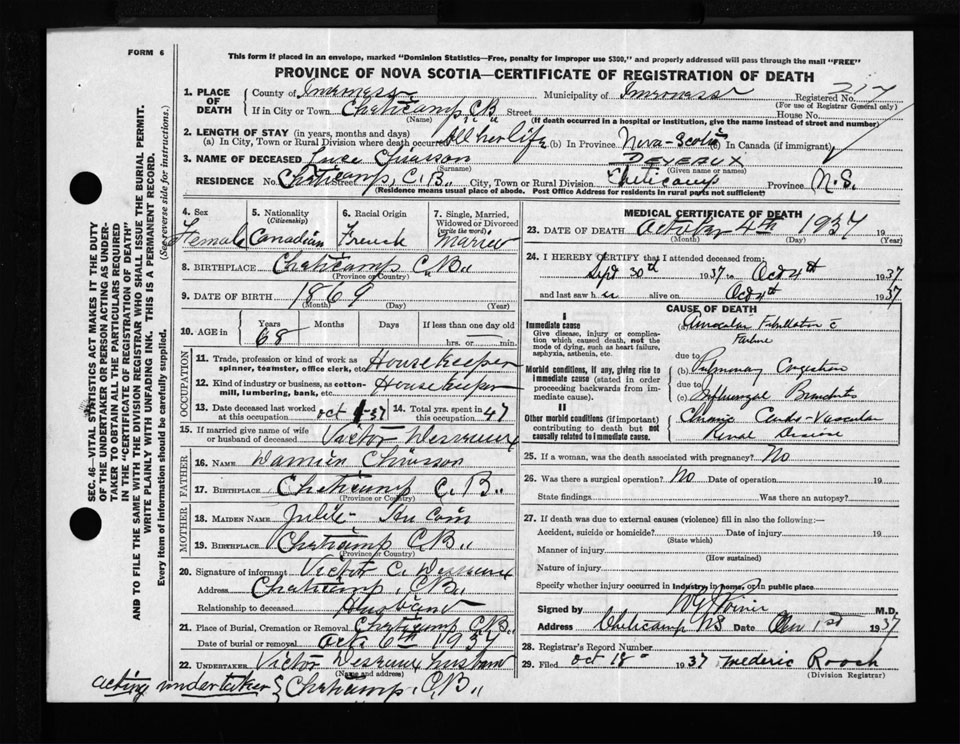 FORM 6
This form if placed in an envelope, marked "Dominion Statistics—Free, penalty for improper use $300," and properly addressed will pass through the mail "FREE"
PROVINCE OF NOVA SCOTIA—CERTIFICATE OF REGISTRATION OF DEATH
1. PLACE OF DEATH { County of Inverness Municipality of Inverness Registered No. 217
(For use of Registrar General only)
If in City or Town Cheticamp, C.B. Street House No.
(Name) (If death occurred in a hospital or institution, give the name instead of street and number)
2. LENGTH OF STAY (in years, months and days)
(a) In City, Town or Rural Division where death occurred All her life (b) In Province Nova-Scotia (c) In Canada (if immigrant)
3. NAME OF DECEASED Luce Chiasson DEVEAUX
(Surname) (Given name or names)
RESIDENCE No. Cheticamp, C.B. Street City, Town or Rural Division Cheticamp Province N.S.
(Residence means usual place of abode. Post Office Address for residents in rural parts not sufficient)
4. Sex Female
5. Nationality (Citizenship) Canadian
6. Racial Origin French
7. Single, Married, Widowed or Divorced (write the word) Married
8. BIRTHPLACE Cheticamp C.B.
(Province or Country)
9. DATE OF BIRTH 1869
(Month) (Day) (Year)
10. AGE in Years 68 Months Days If less than one day old hrs. or min.
OCCUPATION
11. Trade, profession or kind of work as spinner, teamster, office clerk, etc. Housekeeper
12. Kind of industry or business, as cotton-mill, lumbering, bank, etc. Housekeeper
13. Date deceased last worked at this occupation oct 1-37 14. Total yrs. spent in this occupation 47
15. If married give name of wife or husband of deceased Victor Desveaux
FATHER
16. NAME Damien Chiasson
17. BIRTHPLACE Cheticamp C.B.
(Province or Country)
MOTHER
18. MAIDEN NAME Julie Au Coin
19. BIRTHPLACE Cheticamp C.B.
(Province or Country)
20. Signature of informant Victor C. Desveaux
Address Cheticamp, C.B.
Relationship to deceased Husband
21. Place of Burial, Cremation or Removal Cheticamp C.B.
Date of burial or removal Oct 6th 1937
22. UNDERTAKER Victor Desveaux husband
(Name and address)
acting undertaker } Cheticamp, C.B.
MEDICAL CERTIFICATE OF DEATH
23. DATE OF DEATH October 4th 1937 19
(Month) (Day) (Year)
24. I HEREBY CERTIFY that I attended deceased from:
Sept 30th 1937 to Oct 4th 1937
and last saw her alive on Oct 4th 1937
CAUSE OF DEATH
I
Immediate cause
Give disease, injury or complication which caused death, not the mode of dying, such as heart failure, asphyxia, asthenia, etc.
Auricular Fibrillation c Failure
due to
Morbid conditions, if any, giving rise to immediate cause (stated in order proceeding backwards from immediate cause).
(b) Pulmonary Congestion
due to
(c) Influenzal Bronchitis
II
Other morbid conditions (if important) contributing to death but not causally related to immediate cause.
Chronic Cardio-Vascular
Renal Disease
25. If a woman, was the death associated with pregnancy? No
26. Was there a surgical operation? No Date of operation 19
State findings Was there an autopsy?
27. If death was due to external causes (violence) fill in also the following:—
Accident, suicide or homicide? Date of injury 19
(State which)
Manner of injury
(How sustained)
Nature of injury
Specify whether injury occurred in industry, in home, or in public place
Signed by M.D.
Address Cheticamp NS Date 1st 1937
28. Registrar's Record Number
29. Filed oct 18 1937 Frederic Roach
(Division Registrar)
SEC. 46—VITAL STATISTICS ACT MAKES IT THE DUTY
OF THE UNDERTAKER OR PERSON ACTING AS UNDER-
TAKER TO OBTAIN ALL THE PARTICULARS REQUIRED
IN THE "CERTIFICATE OF REGISTRATION OF DEATH"
AND TO FILE THE SAME WITH THE DIVISION REGISTRAR WHO SHALL ISSUE THE BURIAL PERMIT.
WRITE PLAINLY WITH UNFADING INK. THIS IS A PERMANENT RECORD.
Every item of information should be carefully supplied. (See reverse side for instructions.)